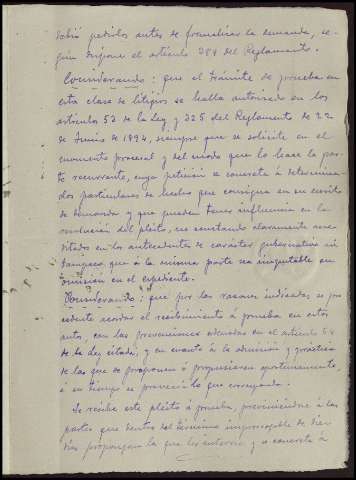 debió pedirlos antes de formalizar la demanda, se-
gún dispone el artículo 284 del Reglamento.
Considerando: que el trámite de prueba en
esta clase de litigios se halla autorizado en los
artículos 53 de la ley, y 325 del Reglamento de 22
de Junio de 1894, siempre que se solicite en el
momento procesal y del modo que lo hace la par-
te recurrente, cuya petición se concreta á determina-
dos particulares de hechos que consigna en su escrito
de demanda y que pueden tener influencia en la
resolución del pleito, no constando claramente acre-
ditados en los antecedentes de carácter gubernativo ni
tampoco que á la misma parte sea imputable su
omisión en el expediente.
Considerando: que por las razones indicadas es pro-
cedente acordar el recibimiento á prueba en estos
autos, con las prevenciones ordenadas en el artículo 54
de la ley citada, y en cuanto á la admisión y práctica
de las que se propongan ó propusieren oportunamente,
á su tiempo se proveerá lo que corresponda.
Se recibe este pleito á prueba, previniéndose á las
partes que dentro del término improrrogable de diez
días propongan la que les interese y se concreta á